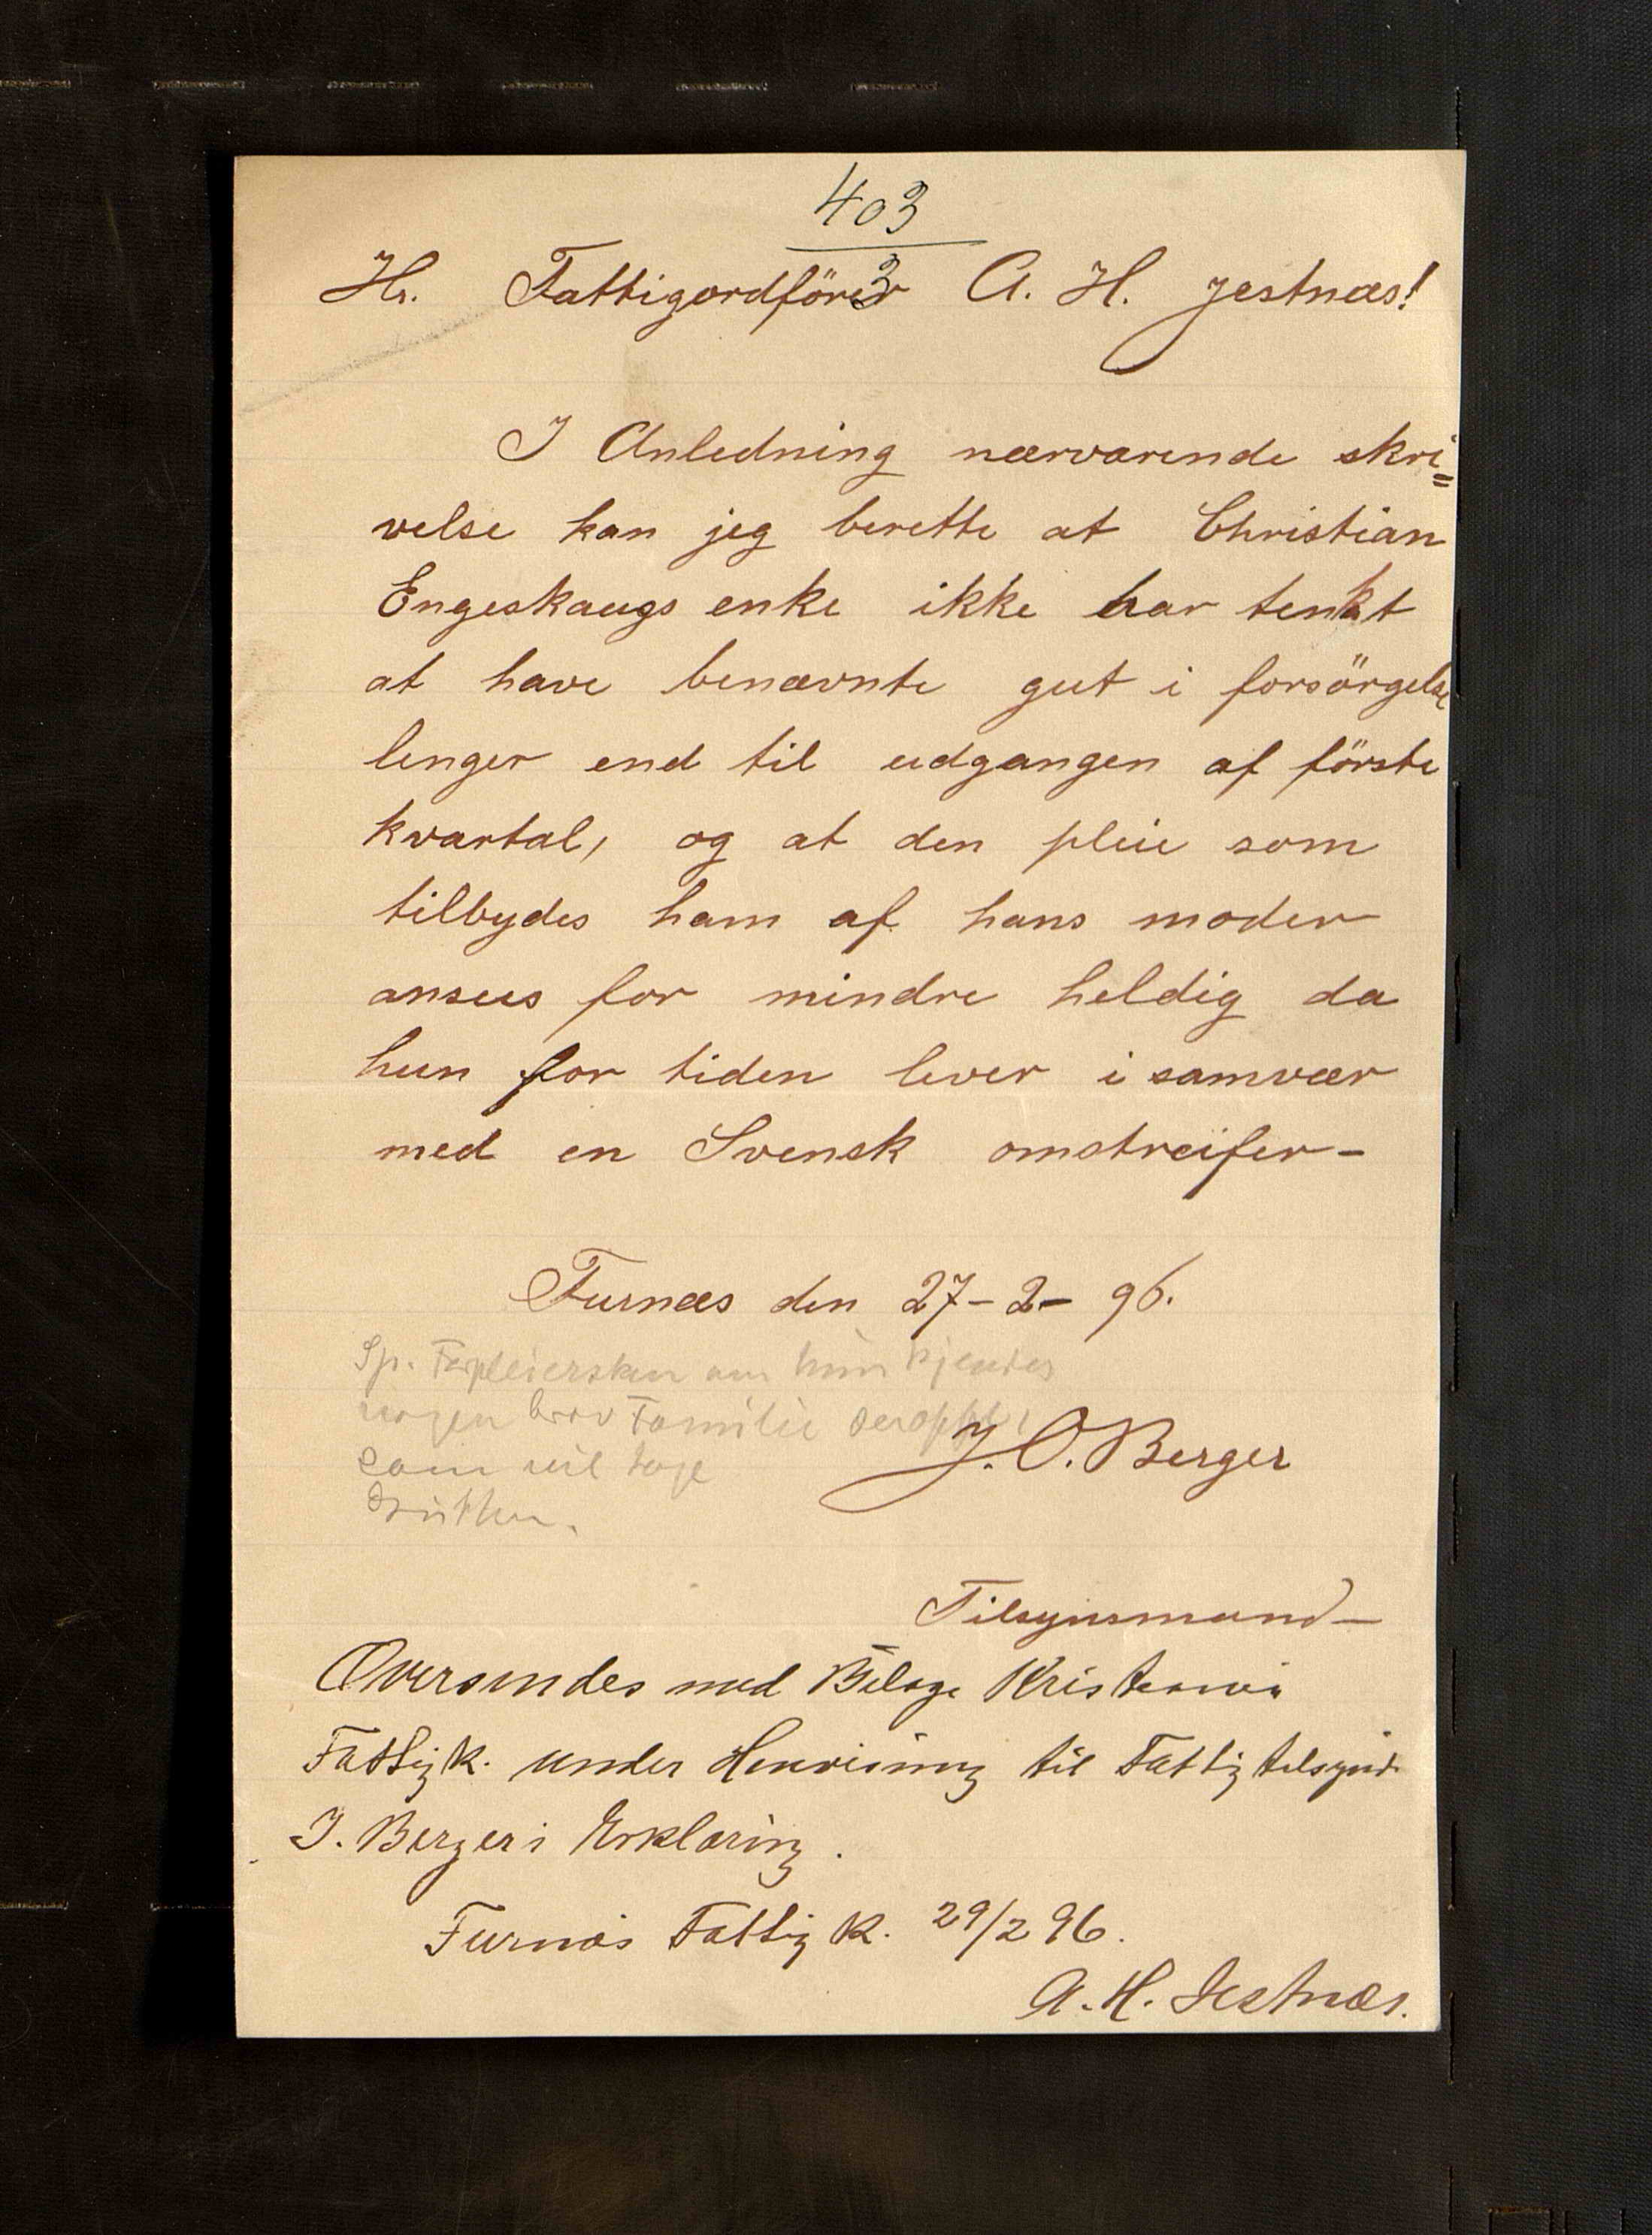 403
3
Hr. Fattigordförer A. H. Jestnæs!
I Anledning nærværende skri=
velse kan jeg berette at Christian
Engeskaugs enke ikke har tenkt
at have benævnte gut i forsörgelse
lenger end til udgangen af förste
kvartal, og at den pleie som
tilbydes ham af hans moder
ansees for mindre heldig da
hun for tiden lever i samvær
med en Svensk omstreifer-
Furnæs den 27-2-96.
Sp. Forpleiersken om hun kjender
nogen brav Familie deroppe,
som vil tage
Gutten.
J. O. Berger
Tilsynsmand-
Oversendes med Bilage Kristiania
Fattigk. under Henvisning til Fattigtilsynsm.
J. Berger i Erklæring.
Furnæs Fattig k. 29/2 96.
A. H. Jestnæs.